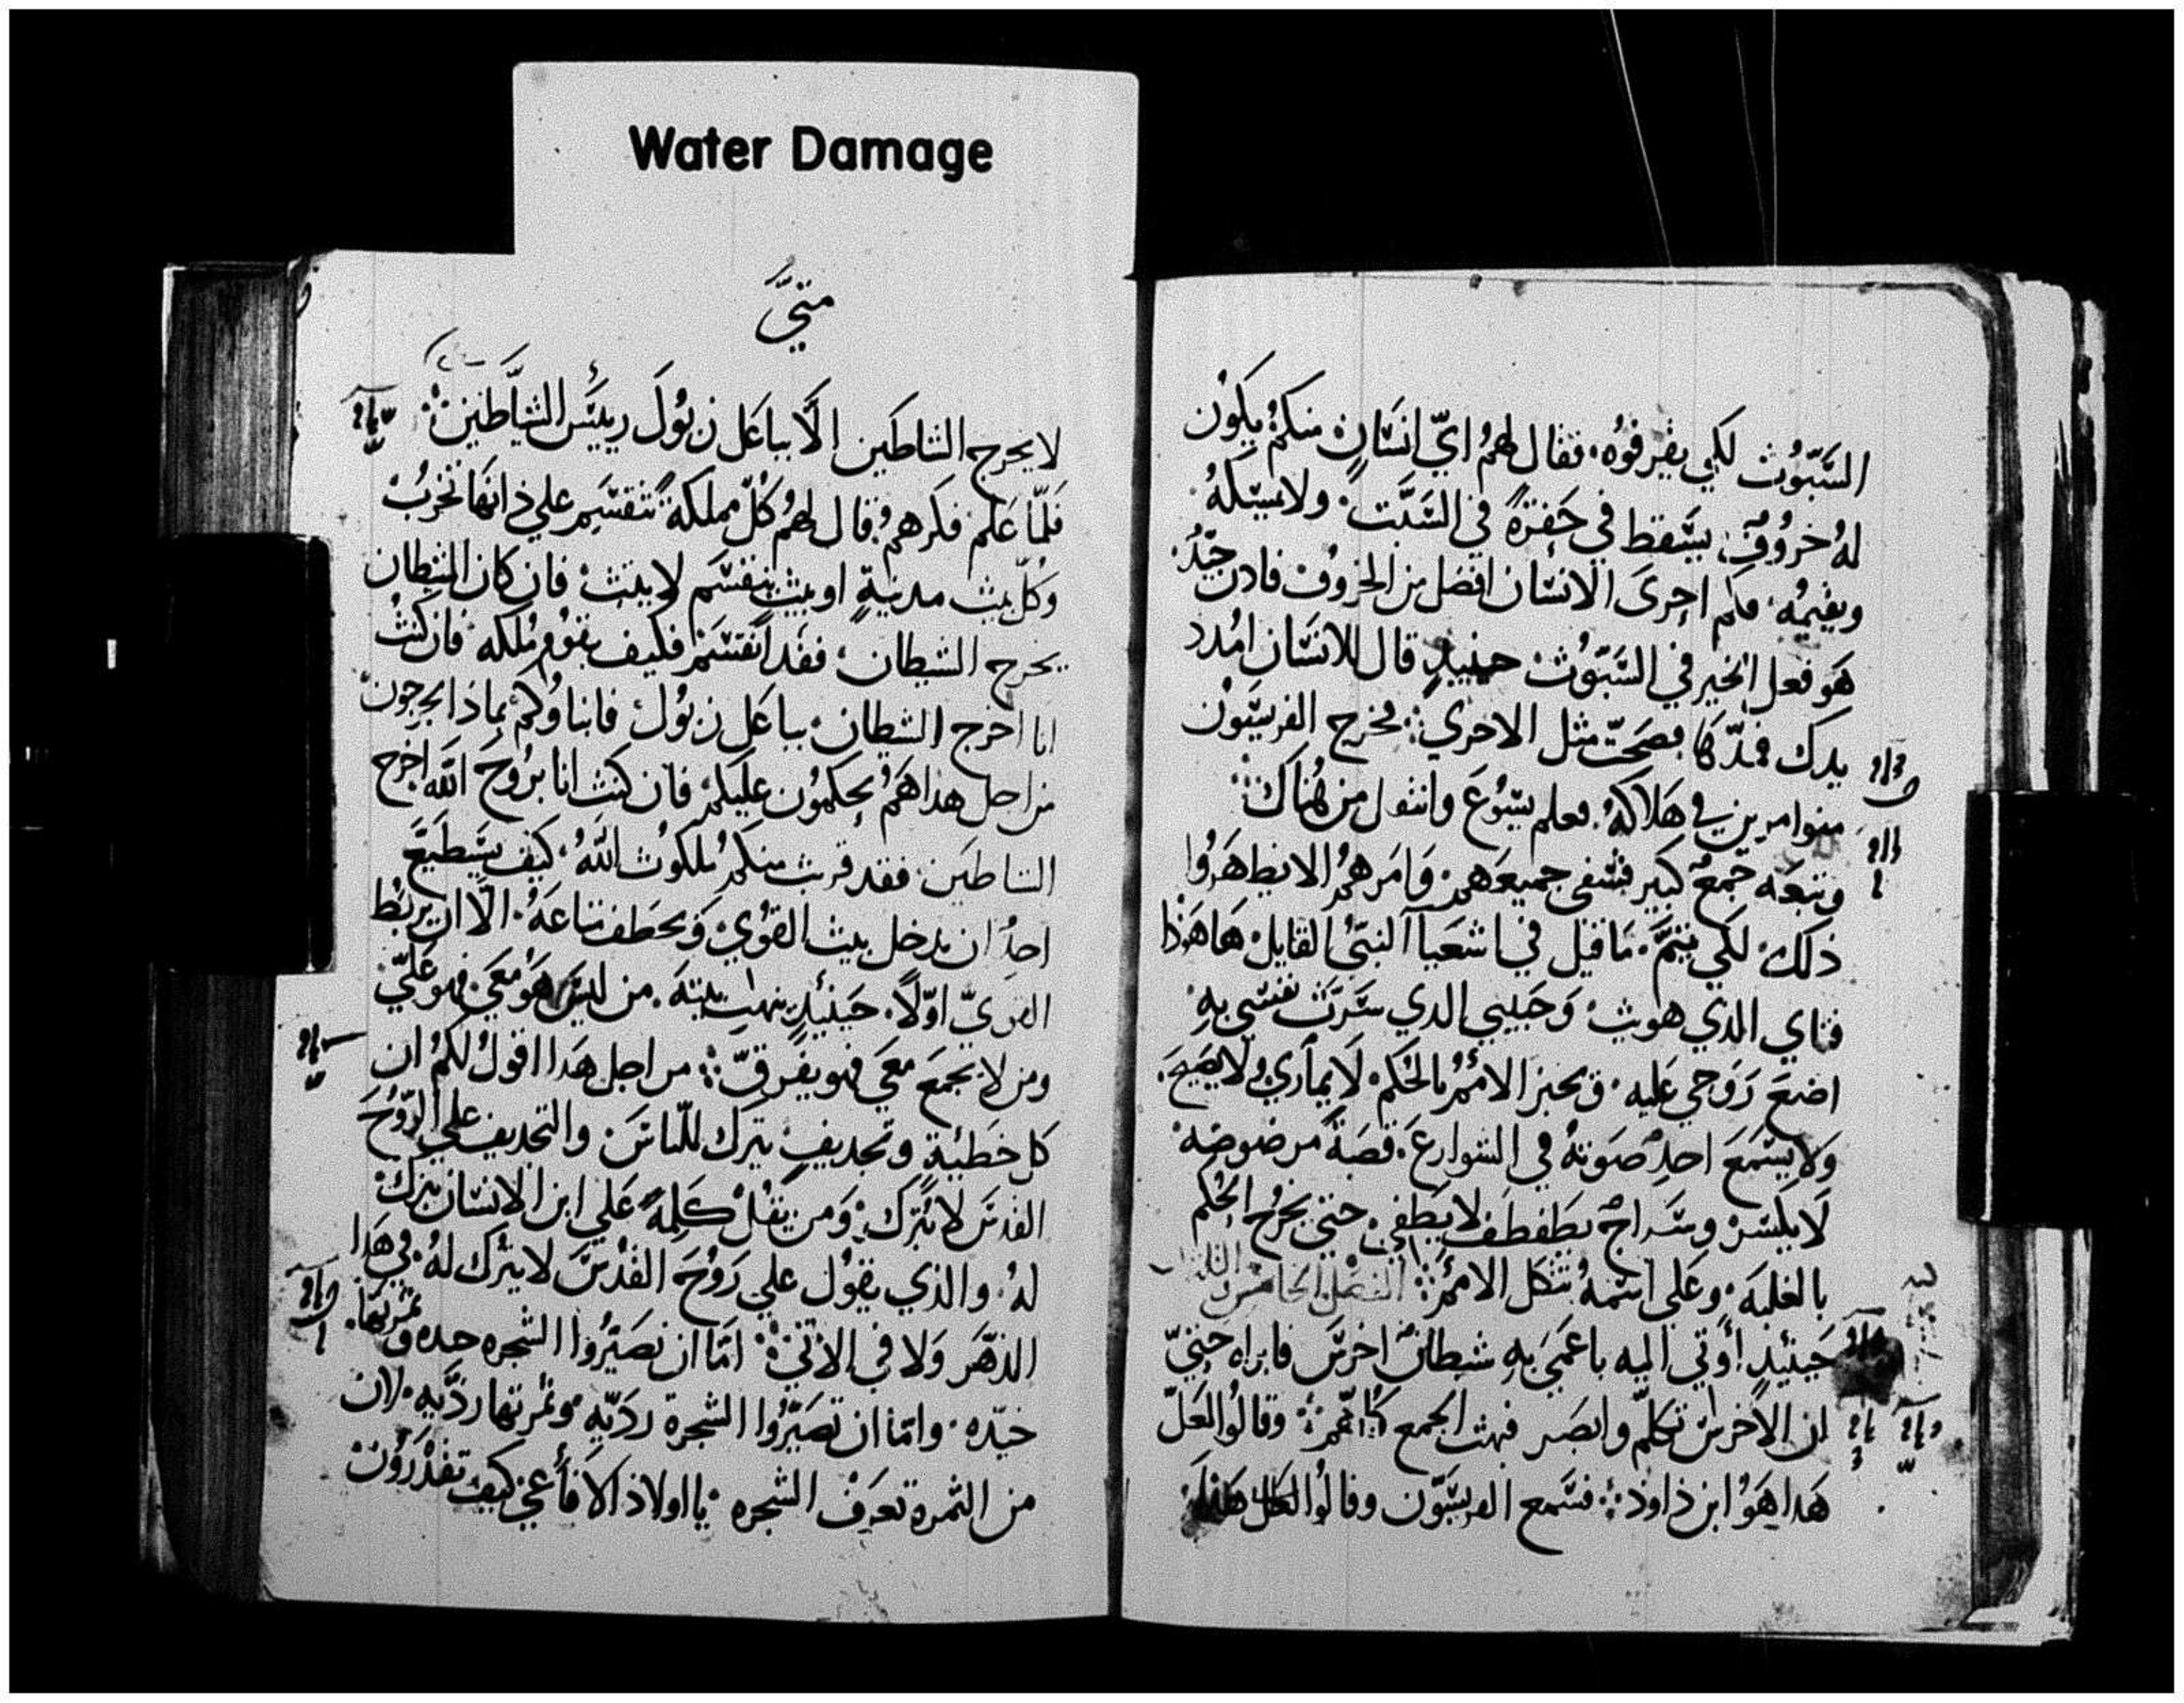 Water Damage
السَّبّوُث لكي يقرفوُه، فقال لهمُ ايّ انسَانٍ منكمُ يكوُن
لهُ خروُوفٌ يسَقط في حَفرَةً في السَبَّت ولا يمسِكهُ
ويقيمُه فكم احرىَ الانسَان افضل من الخروُف فادن جيّدُ
هَو فعل الخير في السَبّوُث حينيدٍ قال للانسَان امُدد
يدك فمدّها فصَحتّ مثل الاخري فخرج الفريسَيّوُن
متوامرين في هَلاكهُ فعلم يسَوُعَ وانتقل من هُناك
وتبعَه جَمعٌ كبير فشفى جميعَهمُ وَامَرهمُ الا يظهَروُا
ذلك لكي يتمَّ مَا قيل في اشعَيا النبيُّ القايل هَا هَوُذا
فتاي الدي هويث وَحَبيبي الدي سَرّتَ نفسَي بهِ
اضعَ رَوَحي عَليه وَيخبر الامُمُ بالحُكم لَا يمارِي وُلا يَصَيحَ
وَلا يسَمعَ احدٌ صَوتهُ في الشوارعَ قصَبةً مَرضوضه
لَا يكسَر وسَراجٌ يطَفطف لا يَطفي حتيّ يخرُج الحُكم
بالغلبَه وعَلى اسَمهُ تتكل الامُمُ الفصَل الخامسَ
حَينيدٍ اوُتي اليه باعمَىَ بهِ شيطانٌ اخرسَ فابراه حتيّ
ان الاخرسَ تكلمّ وابصَر فبهت الجمع كلهّمُ وقالوُا لعَلّ
هَدا هَوُ ابن داوُد فسَمع الفريسَيّون وقالوُا
متيَّ
لا يخرج الشاطَين الَّا بباعَل زبوُلَ رييسَ الشيَّاطَين
فَلمّا عَلم فكرهمُ قال لهمُ كُلّ مملكة تنقسَم علي ذاتهَا تخربُ
وَكلّ مدنيةٍ او بيث ينقسَم لا يثبث فان كان الشيطان
يخرج الشيطان فقد انقسَم فكيف يقوُم مُلكه فان كنثُ
انا اخرج الشيطان بباعَل زبوُل فابناوُكمُ بماذا يخرجون
من اجل هدا هَمُ يحكموُن عليكمُ فان كنث انا برُوحَ اللّه اخرج
الشاطَين فقد قربث منكمُ ملكوُث اللّهُ كيف يسَطيعَ
احدٌ ان يدخل بيث القوُي وَيخطف متاعَهُ الّا ان يربُط
القويّ اوّلًا حَينيدٍ ينهب بيتَه من ليسَ هَوُ معَي فهو عَليّ
ومن لا يجمعَ معَي فهو يفرقّ من اجل هَدا اقوُلُ لكمُ ان
كل خطَيةٍ وَتجديفٍ يترك للنّاسَ والتجديف علي الرّوُحَ
القدسَ لا يُترك وَمن يقلُ كلِمةً عَلي ابن الانسَان يترك
لهُ والذي يقوُل علي رَوُحَ القدُسَ لا يترك لهُ في هَدا
الدهَر وَلا في الاتيُ امَّا ان تصَيّرُوا الشجره جيده وَثمرتهَا
جيّده وامّا ان تصَيّرُوا الشجرة ردَيّهِ وثمُرتها رديَّه لان
من الثمره تعرَف الشجره يا اولاد الافاعَي كيف تقدروُن